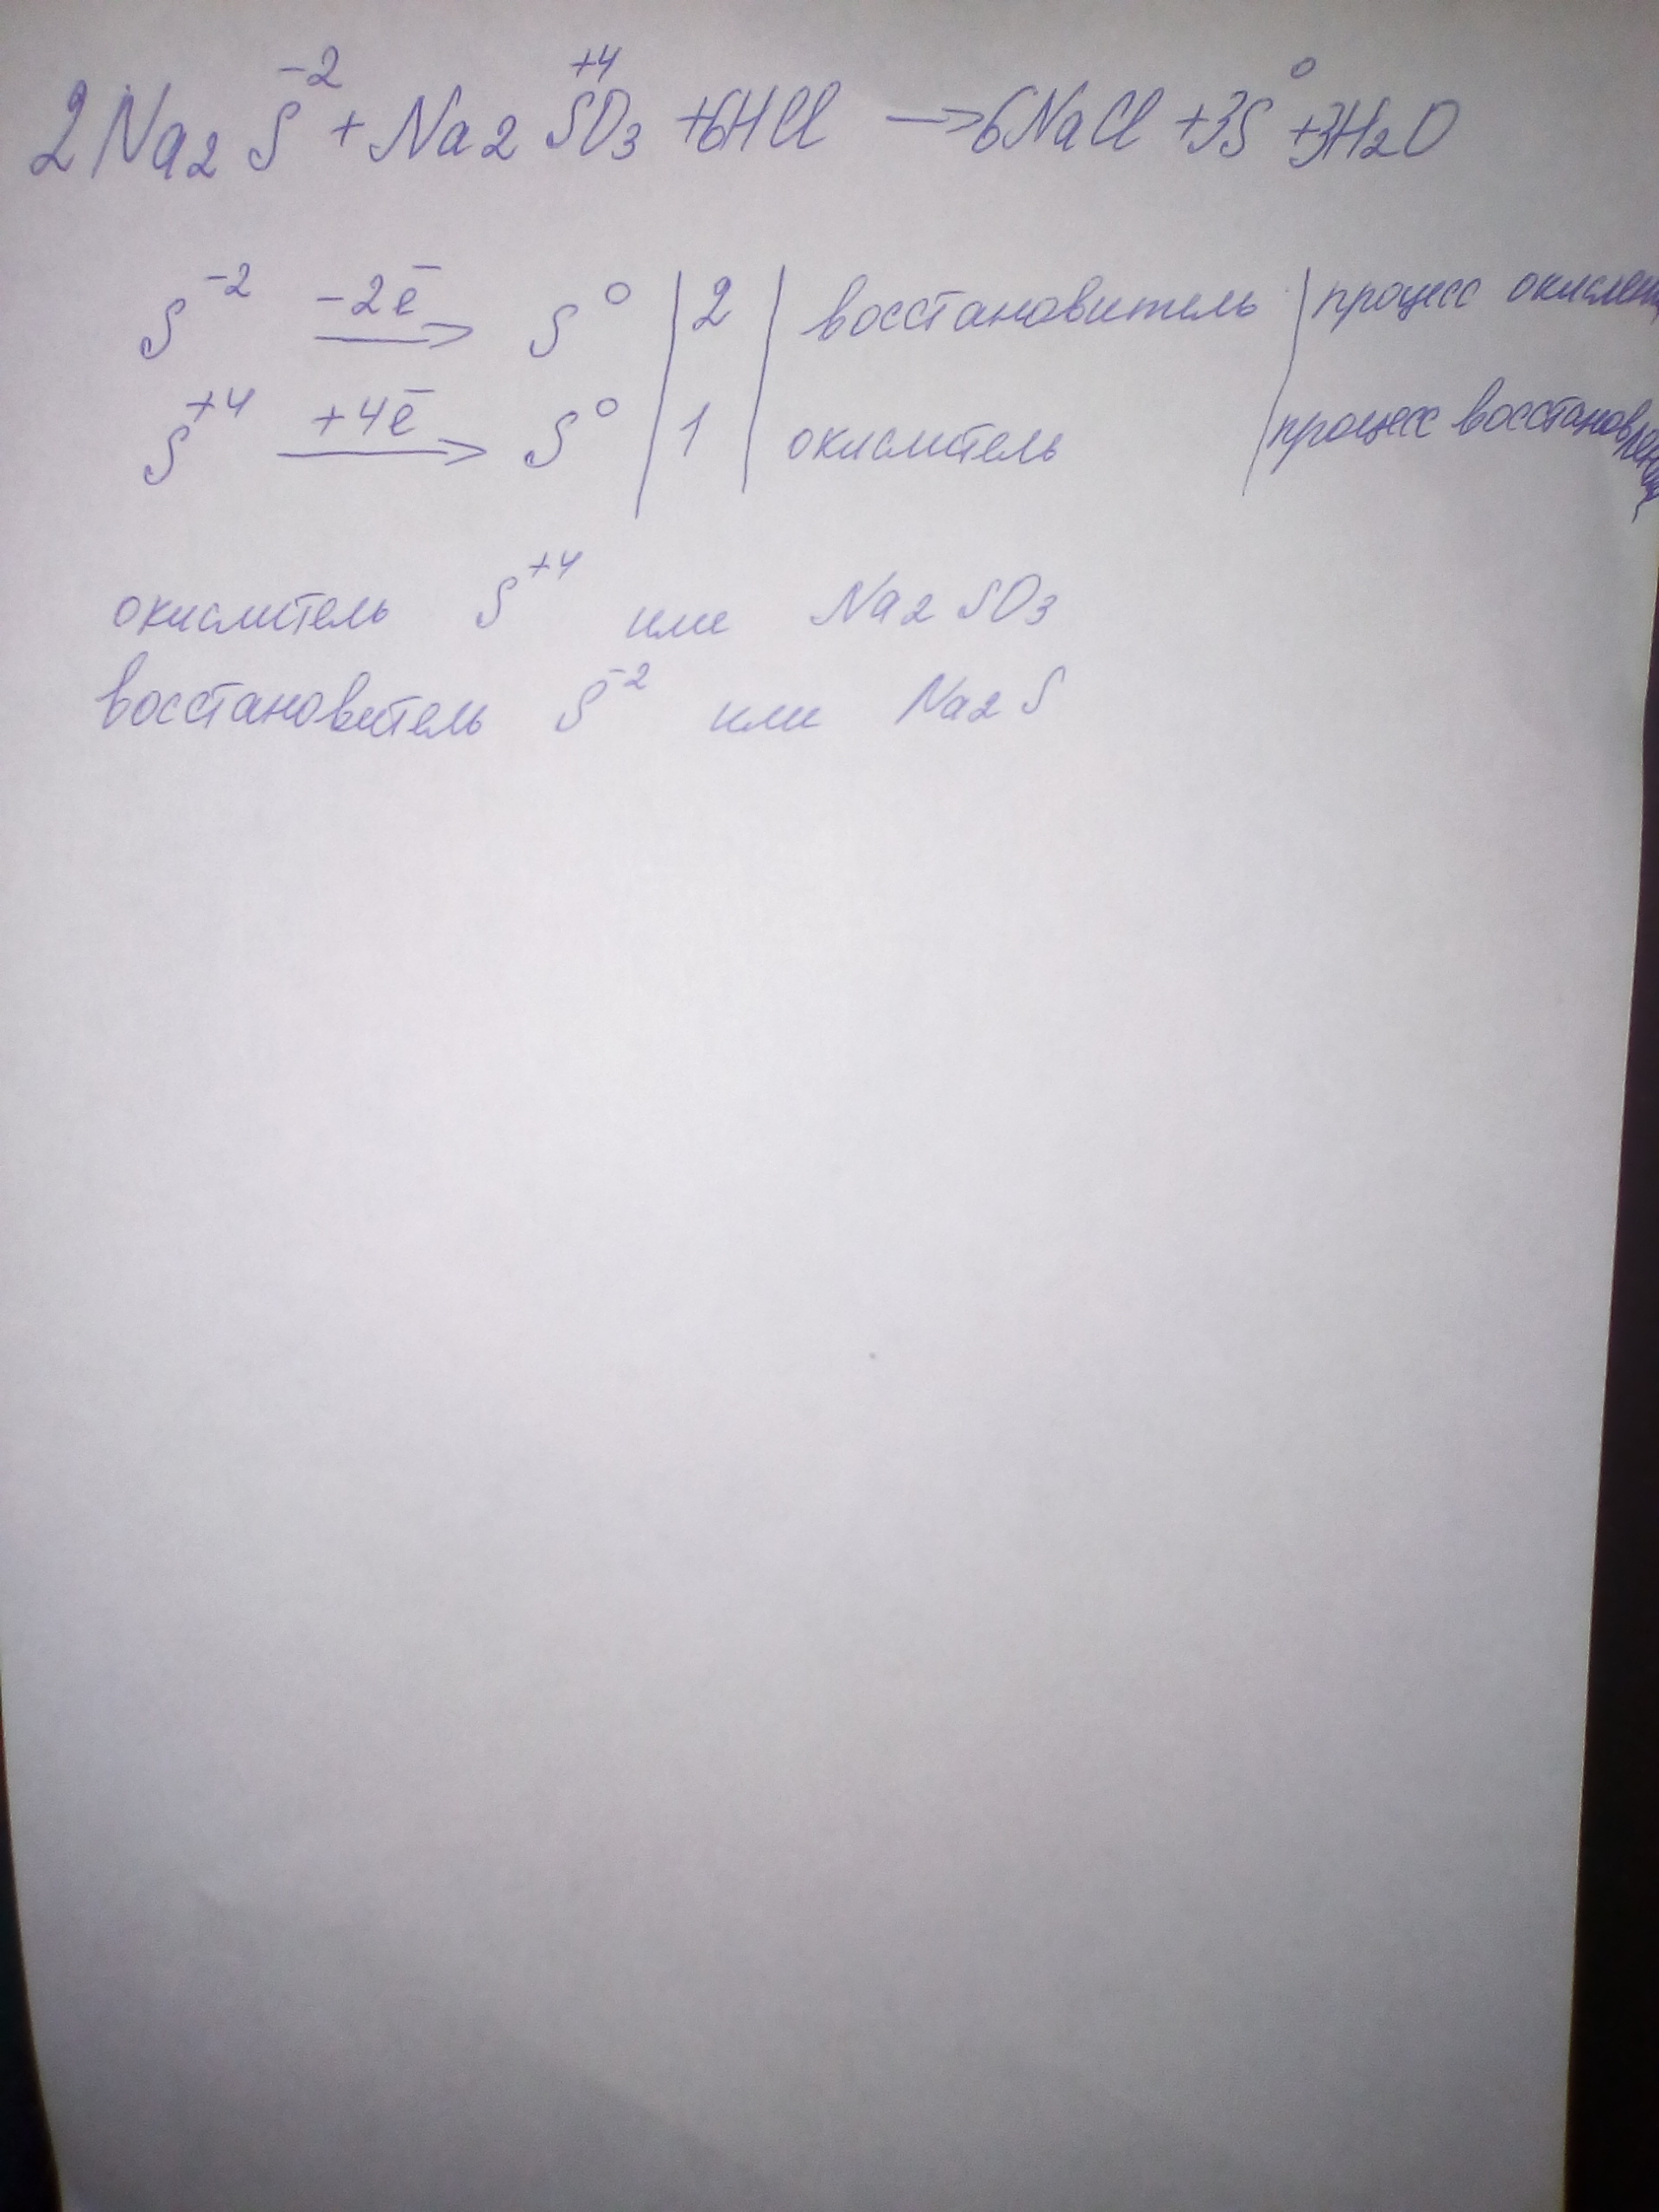 2Na₂S⁻² + Na₂S⁺⁴O₃ + 6HCl → 6NaCl + 3S⁰ + 3H₂O
S⁻² -2ē → S⁰ | 2 | восстановитель | процесс окислен
S⁺⁴ +4ē → S⁰ | 1 | окислитель | процесс восстановлени
окислитель S⁺⁴ или Na₂SO₃
восстановитель S⁻² или Na₂S